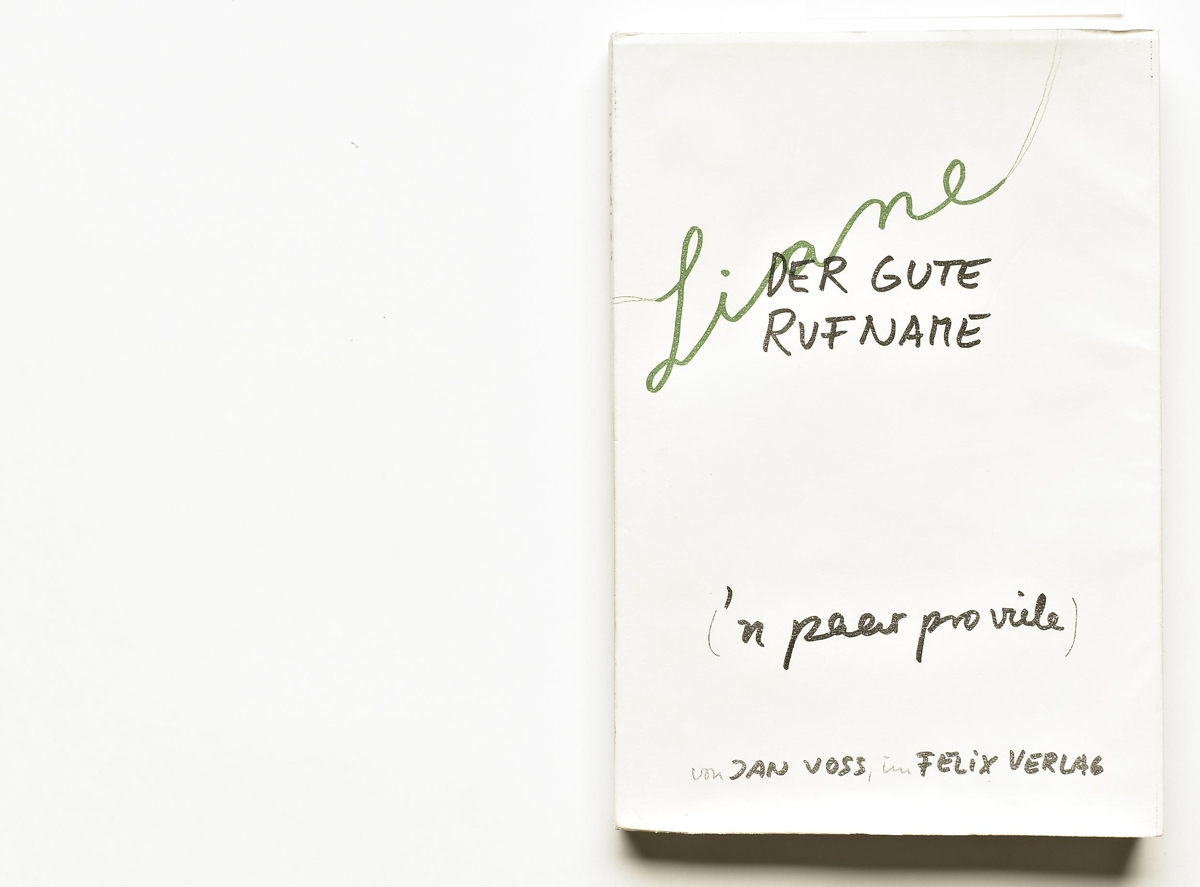 Liane
DER GUTE
RUFNAME
('n paar pro viele)
von JAN VOSS, im FELiX VERLAG